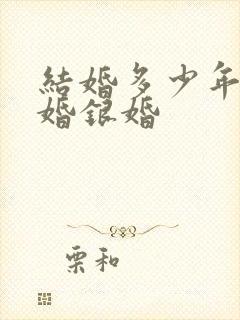 結婚多少年
婚銀婚
栗和